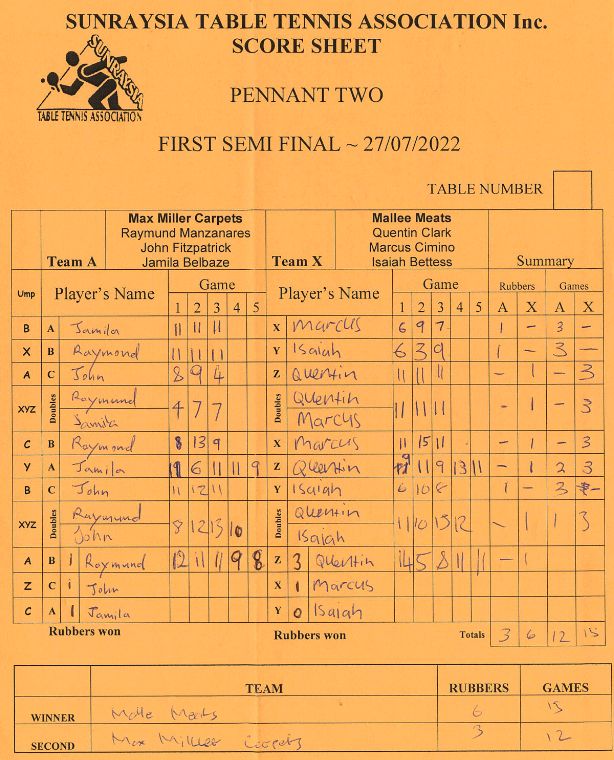 SUNRAYSIA TABLE TENNIS ASSOCIATION Inc.
SCORE SHEET
SUNRAYSIA
TABLE TENNIS ASSOCIATION
PENNANT TWO
FIRST SEMI FINAL ~ 27/07/2022
TABLE NUMBER
Team A Max Miller Carpets Raymund Manzanares John Fitzpatrick Jamila Belbaze Team X Mallee Meats Quentin Clark Marcus Cimino Isaiah Bettess Summary
Ump Player's Name Game 1 2 3 4 5 Player's Name Game 1 2 3 4 5 Rubbers A X Games A X
B A Jamila 11 11 11 X Marcus 6 9 7 1 - 3 -
X B Raymond 11 11 11 Y Isaiah 6 3 9 1 - 3 -
A C John 8 9 4 Z Quentin 11 11 11 - 1 - 3
XYZ Doubles Raymund Jamila 4 7 7 Doubles Quentin Marcus 11 11 11 - 1 - 3
C B Raymond 8 13 9 X Marcus 11 15 11 - 1 - 3
Y A Jamila 11 6 11 11 9 Z Quentin 9 11 9 13 11 - 1 2 3
B C John 11 12 11 Y Isaiah 6 10 8 1 - 3 -
XYZ Doubles Raymund John 8 12 13 10 Doubles Quentin Isaiah 11 10 15 12 - 1 1 3
A B 1 Raymond 12 11 11 9 8 Z 3 Quentin 14 5 8 11 11 - 1
Z C 1 John X 1 Marcus
C A 1 Jamila Y 0 Isaiah
Rubbers won Rubbers won Totals 3 6 12 15
TEAM RUBBERS GAMES
WINNER Malle Meats 6 15
SECOND Max Millker Carpets 3 12